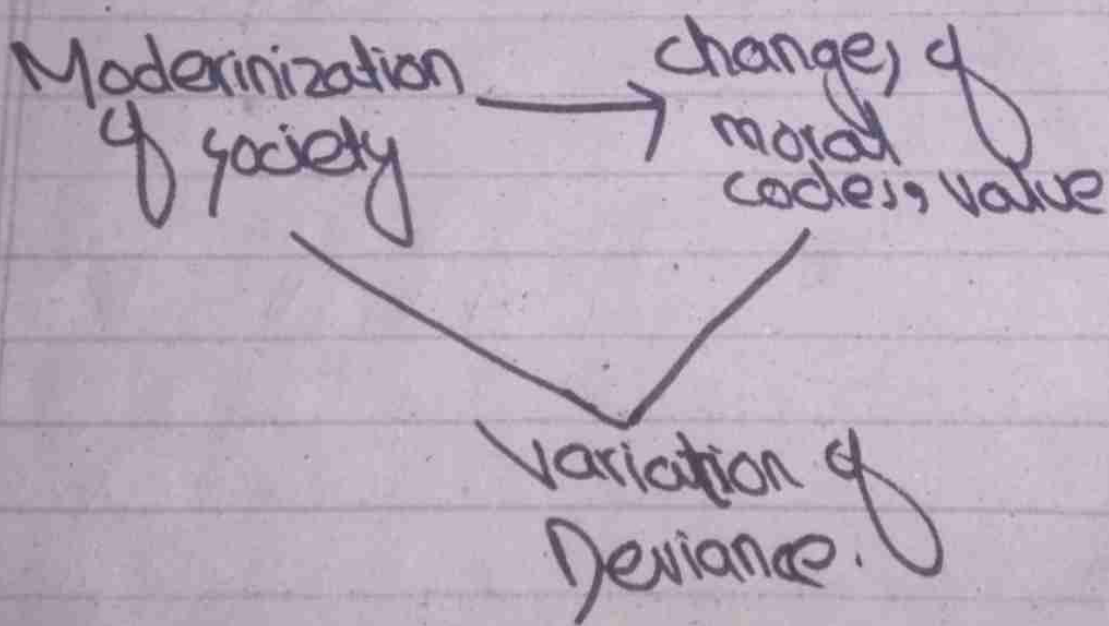 Moderinization
of society
change, of
moral
codes, value
Variation of
Deviance.